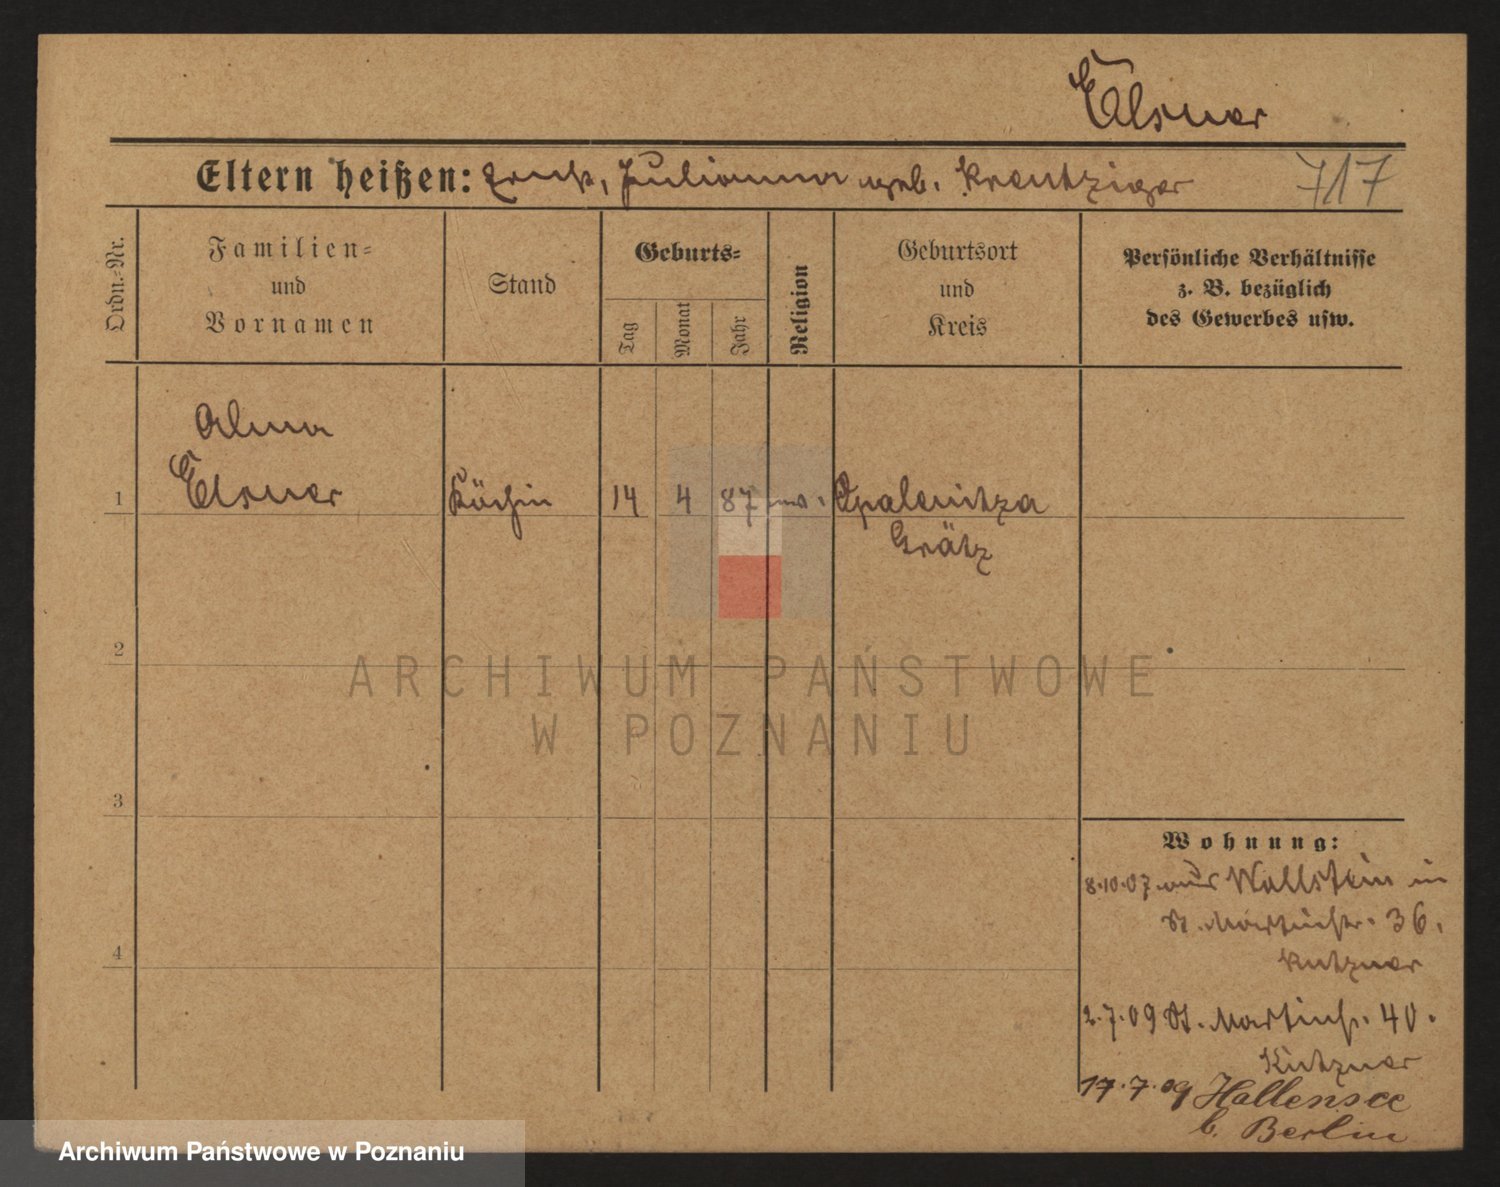 Elsner
Eltern heißen: Ernst, Julianna geb. Kreutziger 717
Ordn.-Nr.
Familien-
und
Vornamen
Stand
Geburts-
Tag
Monat
Jahr
Religion
Geburtsort
und
Kreis
Persönliche Verhältnisse
z. B. bezüglich
des Gewerbes usw.
Alma
1 Elsner Köchin 14 4 87 ev. Opalenitza
Grätz
2
3
4
Wohnung:
8.10.07 aus Wollstein in
St. Martinstr. 36.
Kutzner
2.7.09 St. Martinstr. 40.
Kutzner
17.7.09 Hallensee
b. Berlin
ARCHIWUM PAŃSTWOWE
W POZNANIU
Archiwum Państwowe w Poznaniu